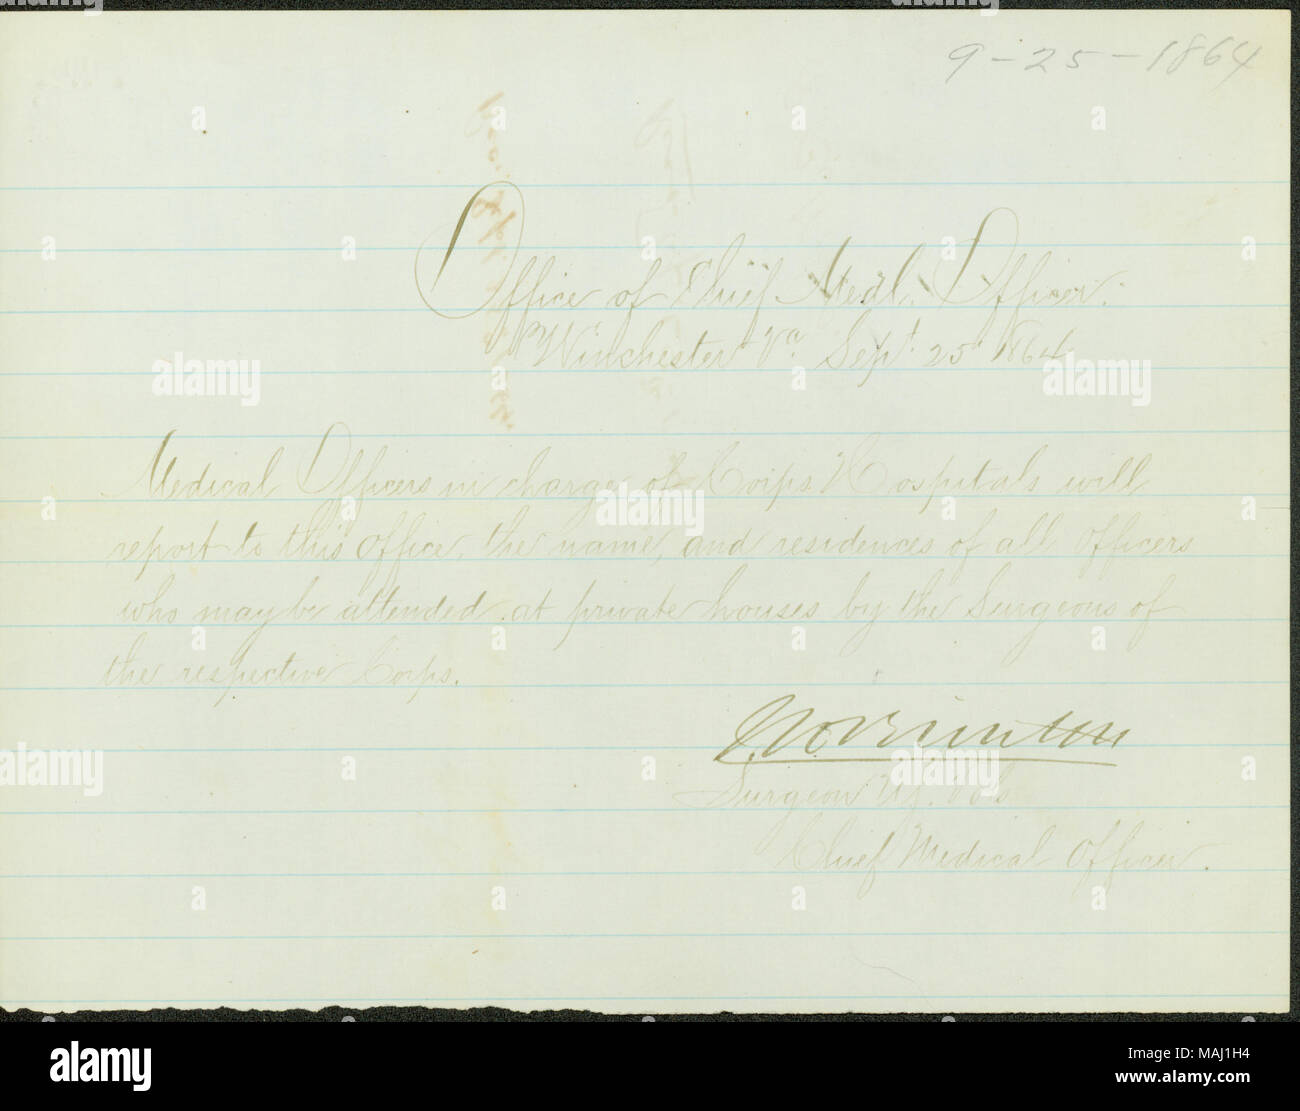 9-25-1864
Office of Chief Medl. Officer.
Winchester Va. Sept. 25 1864
Medical Officers in charge of Corps Hospitals will
report to this office, the name, and residences of all officers
who may be attended at private houses by the Surgeons of
the respective Corps.
Brinton
Surgeon U.S. Vols
Chief Medical Officer.
alamy
Image ID: MAJ1H4
www.alamy.com